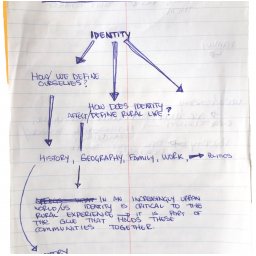 IDENTITY
HOW WE DEFINE
OURSELVES?
HOW DOES IDENTITY
AFFECT/DEFINE RURAL LIFE?
HISTORY, GEOGRAPHY, FAMILY, WORK, → POLITICS
IN AN INCREASINGLY URBAN
WORLD/US IDENTITY IS CRITICAL TO THE
RURAL EXPERIENCE → IT IS PART OF
THE GLUE THAT HOLDS THESE
COMMUNITIES TOGETHER.